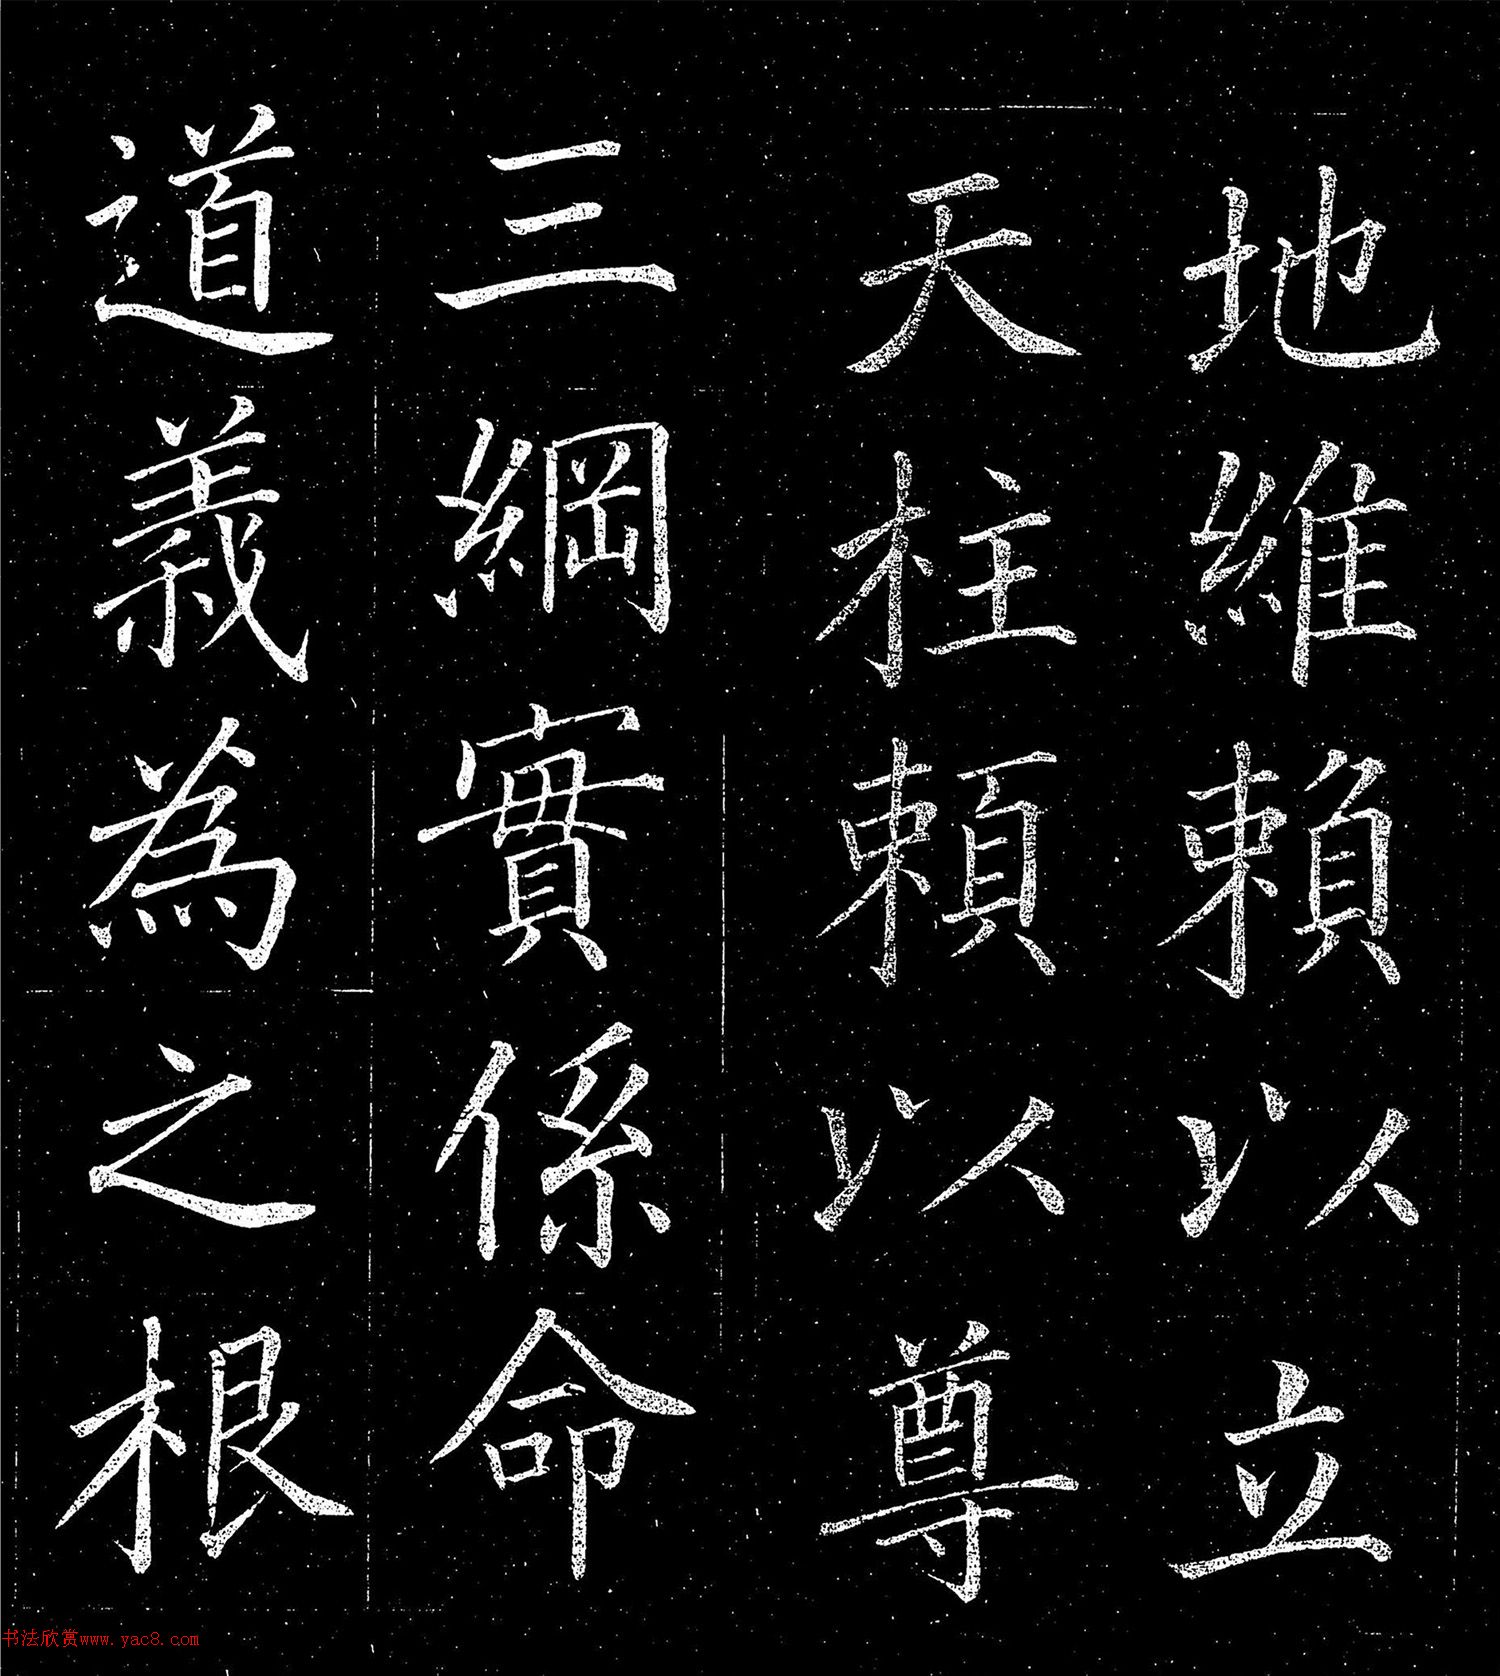 地維賴以立
天柱賴以尊
三綱實係命
道義為之根
书法欣赏www.yac8.com